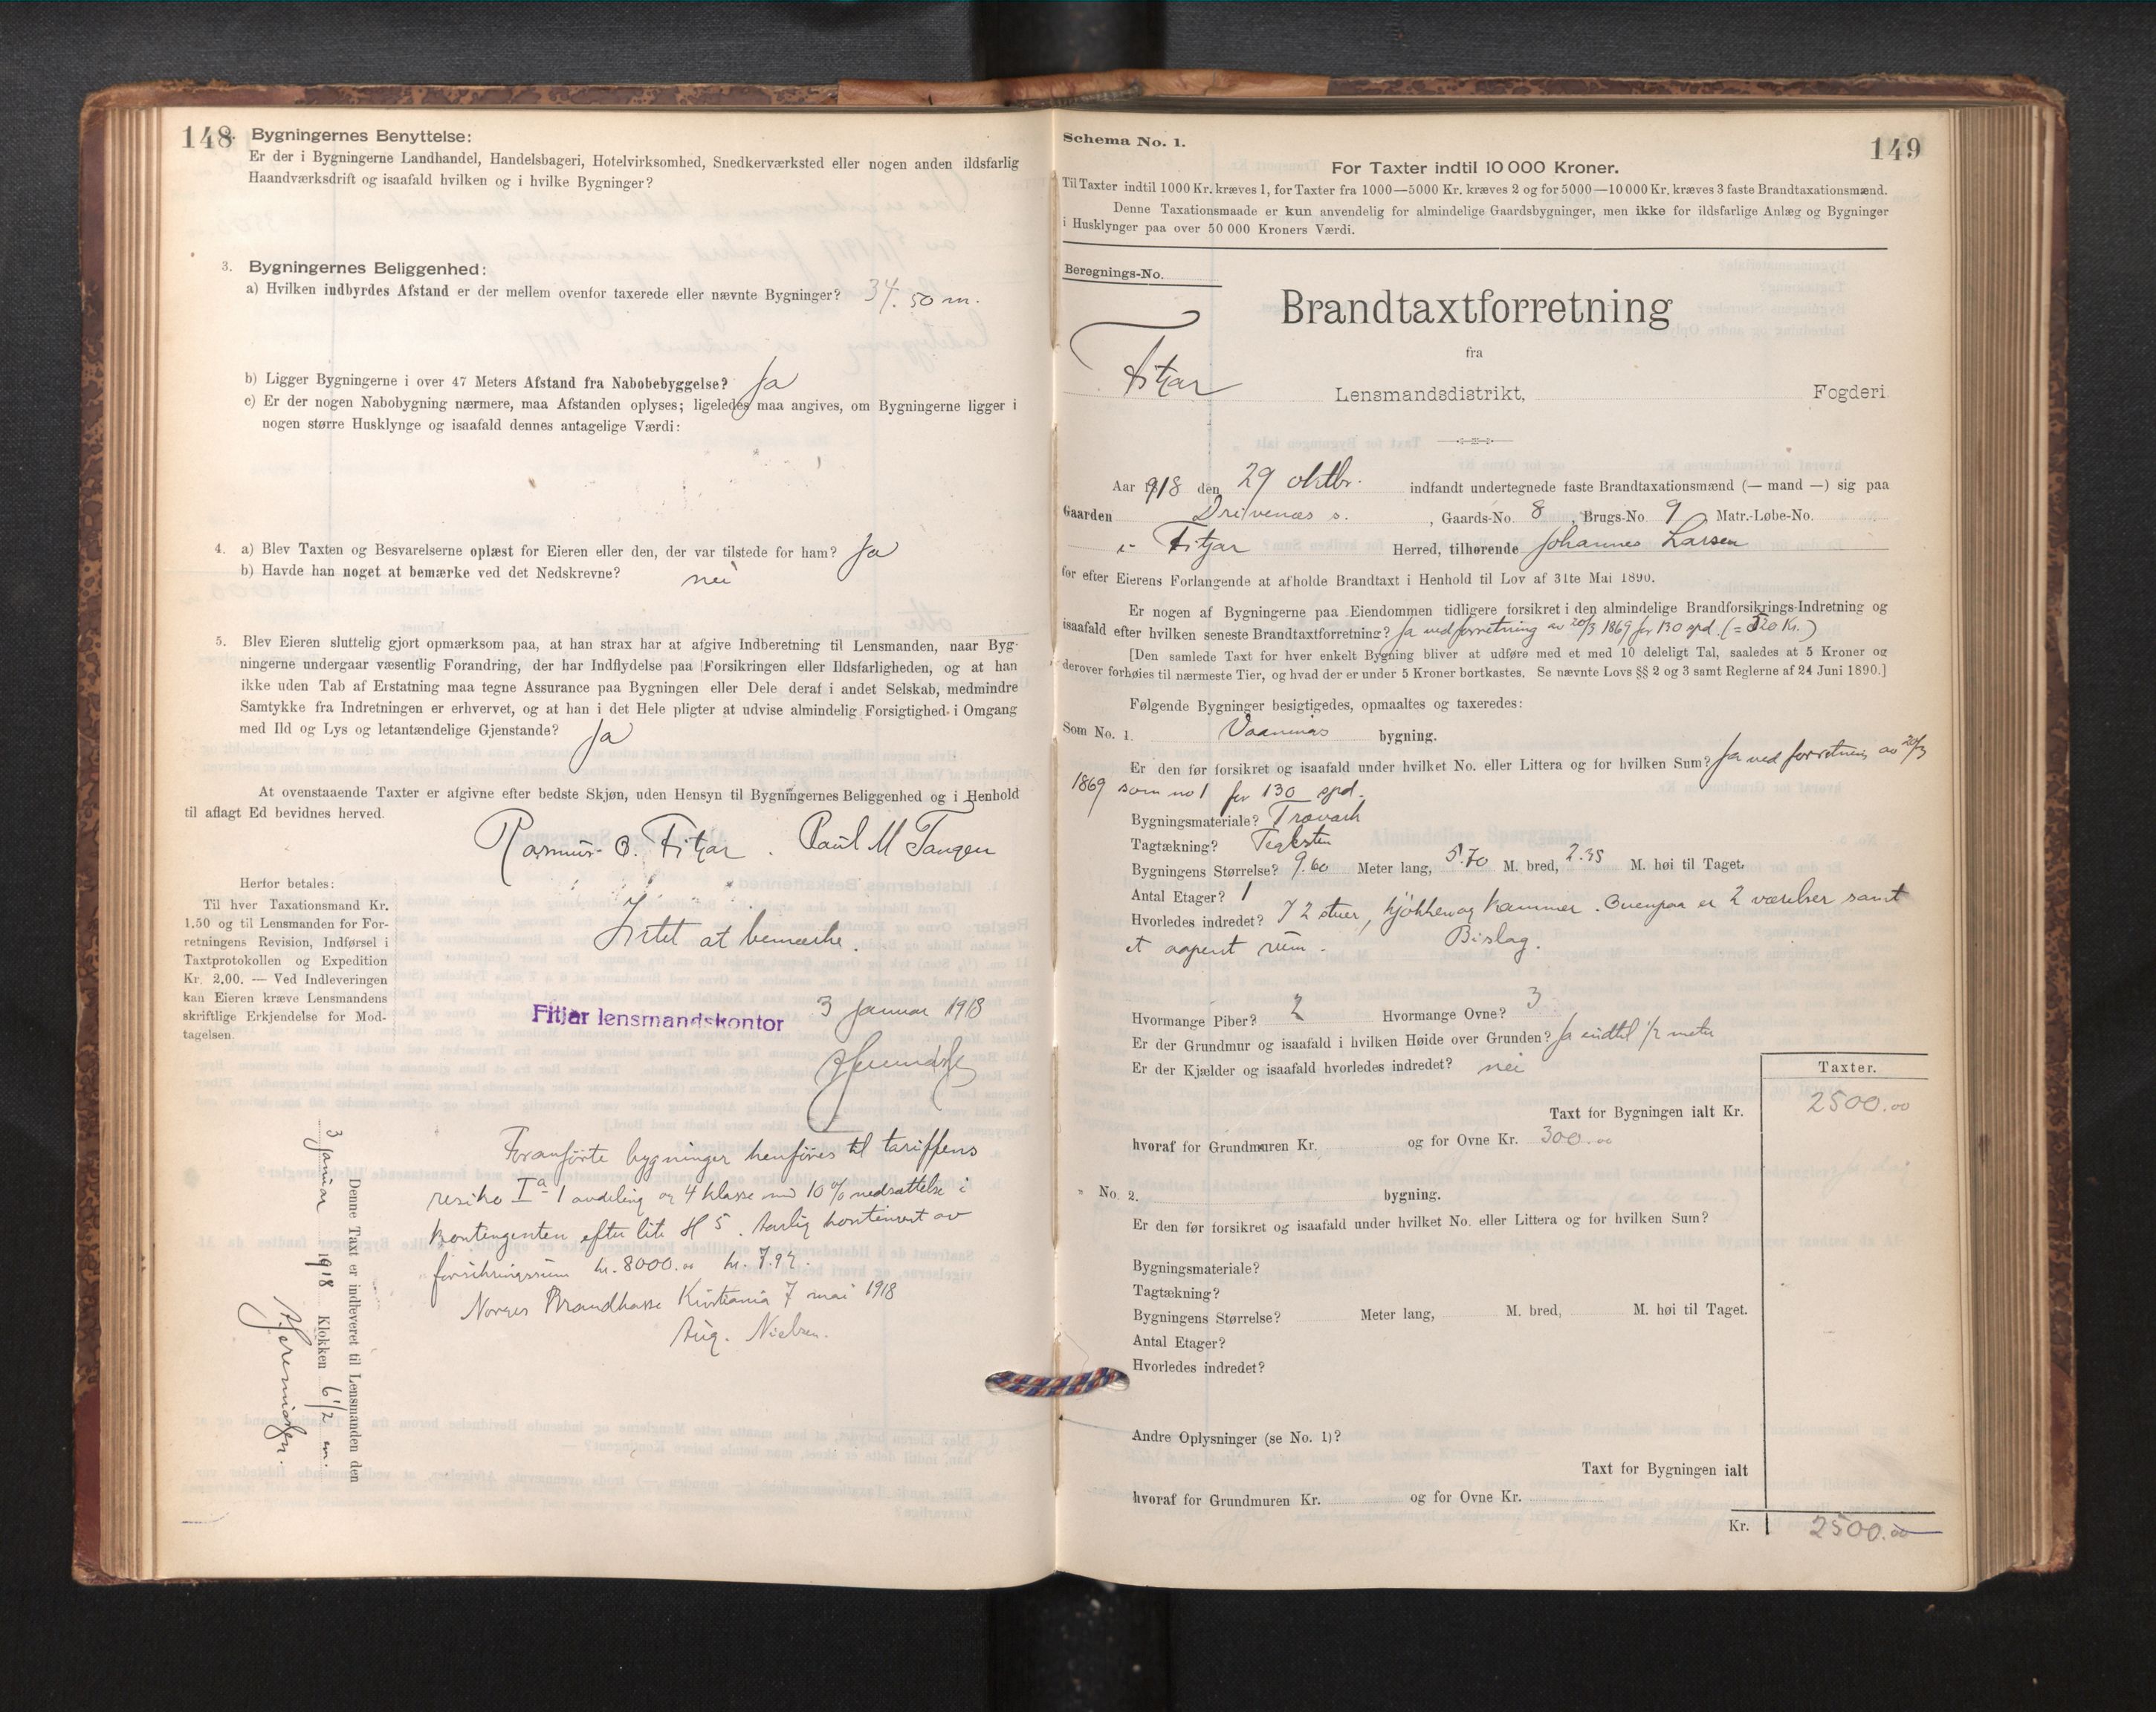 148
Bygningernes Benyttelse:
Er der i Bygningerne Landhandel, Handelsbageri, Hotelvirksomhed, Snedkerværksted eller nogen anden ildsfarlig
Haandværksdrift og isaafald hvilken og i hvilke Bygninger?
3. Bygningernes Beliggenhed:
a) Hvilken indbyrdes Afstand er der mellem ovenfor taxerede eller nævnte Bygninger? 34.50 m.
b) Ligger Bygningerne i over 47 Meters Afstand fra Nabobebyggelse? Ja
c) Er der nogen Nabobygning nærmere, maa Afstanden oplyses; ligeledes maa angives, om Bygningerne ligger i
nogen større Husklynge og isaafald dennes antagelige Værdi:
4. a) Blev Taxten og Besvarelserne oplæst for Eieren eller den, der var tilstede for ham? Ja
b) Havde han noget at bemærke ved det Nedskrevne? nei
5. Blev Eieren sluttelig gjort opmærksom paa, at han strax har at afgive Indberetning til Lensmanden, naar Byg-
ningerne undergaar væsentlig Forandring, der har Indflydelse paa Forsikringen eller Ildsfarligheden, og at han
ikke uden Tab af Erstatning maa tegne Assurance paa Bygningen eller Dele deraf i andet Selskab, medmindre
Samtykke fra Indretningen er erhvervet, og at han i det Hele pligter at udvise almindelig Forsigtighed i Omgang
med Ild og Lys og letantændelige Gjenstande? Ja
At ovenstaaende Taxter er afgivne efter bedste Skjøn, uden Hensyn til Bygningernes Beliggenhed og i Henhold
til aflagt Ed bevidnes herved.
Rasmus O. Fitjar. Paul M Tangen
Herfor betales:
Til hver Taxationsmand Kr.
1.50 og til Lensmanden for For-
retningens Revision, Indførsel i
Taxtprotokollen og Expedition
Kr. 2.00. — Ved Indleveringen
kan Eieren kræve Lensmandens
skriftlige Erkjendelse for Mod-
tagelsen.
Intet at bemerke.
Fitjar lensmandskontor 3 Januar 1918
Foranførte bygninger henføres til tariffens
risiko Ia 1 avdeling og 4 klasse med 10% nedsættelse i
kontingenten efter lite H 5. Aarlig kontingent av
forsikringssum kr. 8000.00 kr. 7.92.
Norges Brandkasse Kristiania 7 mai 1918
Aug. Nielsen.
Denne Taxt er indleveret til Lensmanden den
3 Januar 1918 Klokken 6 1/2 em.
149
Schema No. 1.
For Taxter indtil 10 000 Kroner.
Til Taxter indtil 1000 Kr. kræves 1, for Taxter fra 1000—5000 Kr. kræves 2 og for 5000—10 000 Kr. kræves 3 faste Brandtaxationsmænd.
Denne Taxationsmaade er kun anvendelig for almindelige Gaardsbygninger, men ikke for ildsfarlige Anlæg og Bygninger
i Husklynger paa over 50 000 Kroners Værdi.
Beregnings-No.
Brandtaxtforretning
fra
Fitjar Lensmandsdistrikt, Fogderi
Aar 1918 den 29 oktbr. indfandt undertegnede faste Brandtaxationsmænd (— mand —) sig paa
Gaarden Dreivenæs s., Gaards-No. 8, Brugs-No. 9, Matr.-Løbe-No.
i Fitjar Herred, tilhørende Johannes Larsen
for efter Eierens Forlangende at afholde Brandtaxt i Henhold til Lov af 31te Mai 1890.
Er nogen af Bygningerne paa Eiendommen tidligere forsikret i den almindelige Brandforsikrings-Indretning og
isaafald efter hvilken seneste Brandtaxtforretning? Ja ved forretning av 20/3 1869 for 130 spd. (= 520 Kr.)
[Den samlede Taxt for hver enkelt Bygning bliver at udføre med et med 10 deleligt Tal, saaledes at 5 Kroner og
derover forhøies til nærmeste Tier, og hvad der er under 5 Kroner bortkastes. Se nævnte Lovs §§ 2 og 3 samt Reglerne af 24 Juni 1890.]
Følgende Bygninger besigtigedes, opmaaltes og taxeredes:
Som No. 1. Vaanings bygning.
Er den før forsikret og isaafald under hvilket No. eller Littera og for hvilken Sum? Ja ved forretning av 20/3
1869 som no 1 for 130 spd.
Bygningsmateriale? Træværk
Tagtækning? Teglsten
Bygningens Størrelse? 9.60 Meter lang, 5.70 M. bred, 2.35 M. høi til Taget.
Antal Etager? 1
Hvorledes indredet? I 2 stuer, kjøkken og kammer. Ovenpaa er 2 værelser samt
et aapent rum. Bislag.
Hvormange Piber? 2 Hvormange Ovne? 3
Er der Grundmur og isaafald i hvilken Høide over Grunden? Ja indtil 1/2 meter
Er der Kjælder og isaafald hvorledes indredet? nei
Taxter.
Taxt for Bygningen ialt Kr. 2500.00
hvoraf for Grundmuren Kr. og for Ovne Kr. 300.00
" No. 2. bygning.
Er den før forsikret og isaafald under hvilket No. eller Littera og for hvilken Sum?
Bygningsmateriale?
Tagtækning?
Bygningens Størrelse? Meter lang, M. bred, M. høi til Taget.
Antal Etager?
Hvorledes indredet?
Andre Oplysninger (se No. 1)?
Taxt for Bygningen ialt
hvoraf for Grundmuren Kr. og for Ovne Kr.
Kr. 2500.00